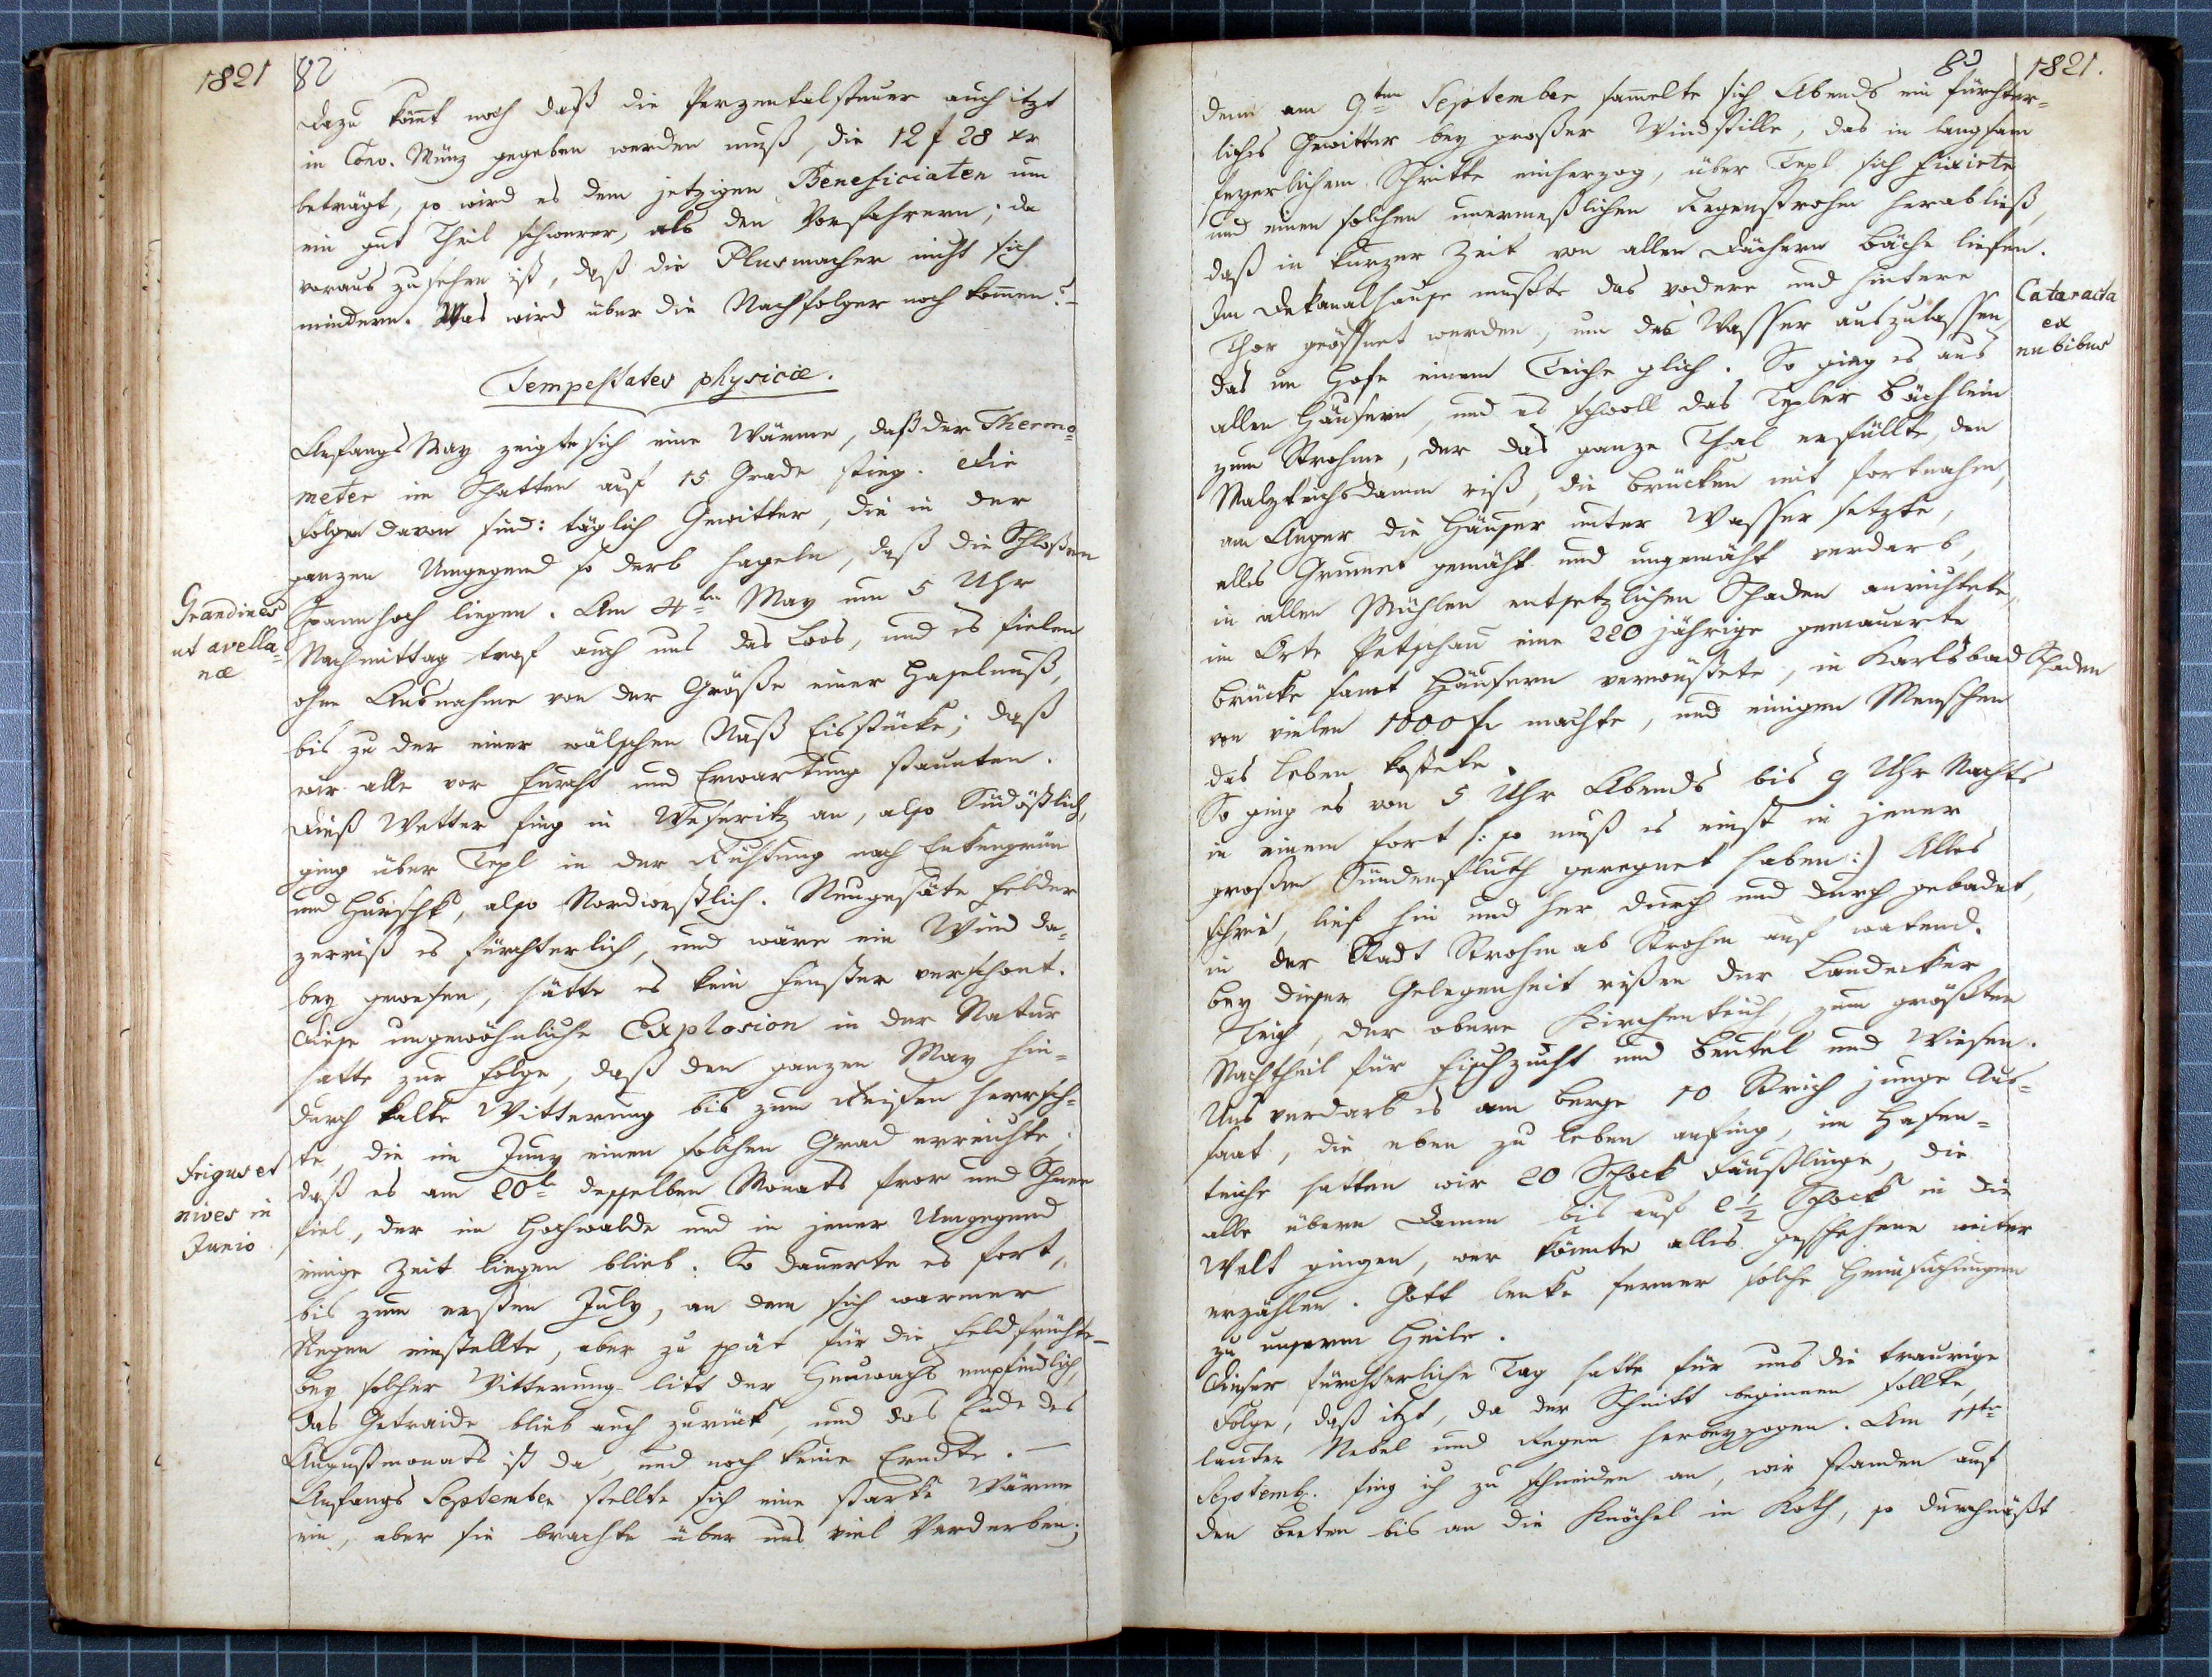 1821
82
Dazu kömt noch daß die Perzentalsteuer auch itzt
in Conv. Münz gegeben werden muß, die 12 f 28 xr
beträgt, so wird es dem jetzigen Beneficiaten um
ein gut Theil schwerer, als den Vorfahrern; da
voraus zu sehen ist, daß die Plusmacher nicht sich
mindern. Was wird über die Nachfolger noch komen?–
Tempestates physicæ.
Anfangs May zeigte sich eine Wärme, daß der Thermo=
meter im Schatten auf 15 Grade stieg. Die
Folgen davon sind: täglich Gewitter, die in der
ganzen Umgegend so derb hageln, daß die Schloßen
Spannhoch liegen. Am 4ten May um 5 Uhr
Nachmittag traf auch uns das Loos, und es fielen
ohne Ausnahme von der Größe einer Haselnuß,
bis zu der einer wälschen Nuß Eisstücke; daß
wir alle vor Furcht und Erwartung staunten.
Dieß Wetter fing in Weseritz an, also Südöstlich,
ging über Tepl in der Richtung nach Enkengrün
und Hurschk, also Nordwestlich. Neugesäte Felder
zerriß es fürchterlich, und wäre ein Wind da=
bey gewesen, hätte es kein Fenster verschont.
Diese ungewöhnliche Explosion in der Natur
hatte zur Folge, daß den ganzen May hin=
durch kalte Witterung bis zum Reifen herrsch=
te, die im Juny einen solchen Grad erreichte;
daß es am 20te desselben Monats fror und Schnee
fiel, der im Hochwalde und in jener Umgegend
einige Zeit liegen blieb. So dauerte es fort,
bis zum ersten July, an dem sich warmer
Regen einstellte, aber zu spät für die Feldfrüchte–
bey solcher Witterung litt der Heuwachs empfindlich,
das Getraide blieb auch zurück, und das Ende des
Augustmonats ist da, und noch keine Erndte. —
Anfangs September stellte sich eine starke Wärme
ein, aber sie brachte über uns viel Verderben;
Grandines
ut avella=
næ
Frigus et
nives in
Junio
83
1821.
denn am 9ten September samelte sich Abends ein fürchter=
liches Gewitter bey großer Windstille, das in langsam
feyerlichem Schritte einherzog, über Tepl sich fixirte
und einen solchen unermeßlichen Regenstrohm herabließ,
daß in kurzer Zeit von allen Dächern Bäche liefen.
Im Dekanalhause mußte das vodere und hintere
Thor geöffnet werden, um das Wasser auszulassen,
das im Hofe einem Teiche glich. So ging es aus
allen Häusern, und es schwoll das Tepler Bächlein
zum Strohme, der das ganze Thal erfüllte, den
Malzteichsdamm riß, die Brücken mit fortnahm,
am Anger die Häuser unter Wasser setzte,
alles Grumet gemäht und ungemäht verdarb,
in allen Mühlen entsetzlichen Schaden anrichtete,
im Orte Petschau eine 220 jährige gemauerte
Brücke samt Häusern verwüstete, in Karlsbad Schaden
von vielen 1000 fr machte, und einigen Menschen
das Leben kostete.
So ging es von 5 Uhr Abends bis 9 Uhr Nachts
in einem fort (: so muß es einst in jener
großen Sündenfluth geregnet haben :) Alles
schrie, lief hin und her durch und durch gebadet,
in der Stadt Strohm ab Strohm auf watend.
bey dieser Gelegenheit rißen der Landecker
Teich, der obere Kirchenteich, zum größten
Nachtheil für Fischzucht und Beutel und Wiesen.
Uns verdarb es am Berge 10 Strich junge Aus=
saat, die eben zu leben anfing, im Hafen=
teiche hatten wir 20 Schock Fäustlinge, die
alle übern Damm bis auf 2½ Schock in die
Welt gingen, wer könnte alles geschehene weiter
erzählen. Gott lenke ferner solche Heimsuchungen
zu unserm Heile.
Dieser fürchterliche Tag hatte für uns die traurige
Folge, daß itzt, da der Schnitt beginnen sollte,
lauter Nebel und Regen herbeyzogen. Am 11ten
Septemb. fing ich zu schneiden an, wir standen auf
den Beeten bis an die Knöchel in Koth, so durchnäßt
Cataracta
ex
nubibus